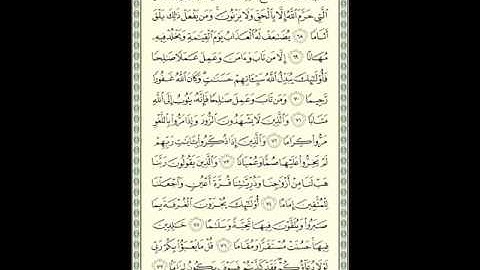 ٱلَّتِي حَرَّمَ ٱللَّهُ إِلَّا بِٱلْحَقِّ وَلَا يَزْنُونَ ۚ وَمَن يَفْعَلْ ذَٰلِكَ يَلْقَ
أَثَامًا ٦٨ يُضَٰعَفْ لَهُ ٱلْعَذَابُ يَوْمَ ٱلْقِيَٰمَةِ وَيَخْلُدْ فِيهِۦ
مُهَانًا ٦٩ إِلَّا مَن تَابَ وَءَامَنَ وَعَمِلَ عَمَلًا صَٰلِحًا
فَأُو۟لَٰٓئِكَ يُبَدِّلُ ٱللَّهُ سَيِّـَٔاتِهِمْ حَسَنَٰتٍ ۗ وَكَانَ ٱللَّهُ غَفُورًا
رَّحِيمًا ٧٠ وَمَن تَابَ وَعَمِلَ صَٰلِحًا فَإِنَّهُۥ يَتُوبُ إِلَى ٱللَّهِ
مَتَابًا ٧١ وَٱلَّذِينَ لَا يَشْهَدُونَ ٱلزُّورَ وَإِذَا مَرُّوا۟ بِٱللَّغْوِ
مَرُّوا۟ كِرَامًا ٧٢ وَٱلَّذِينَ إِذَا ذُكِّرُوا۟ بِـَٔايَٰتِ رَبِّهِمْ
لَمْ يَخِرُّوا۟ عَلَيْهَا صُمًّا وَعُمْيَانًا ٧٣ وَٱلَّذِينَ يَقُولُونَ رَبَّنَا
هَبْ لَنَا مِنْ أَزْوَٰجِنَا وَذُرِّيَّٰتِنَا قُرَّةَ أَعْيُنٍ وَٱجْعَلْنَا
لِلْمُتَّقِينَ إِمَامًا ٧٤ أُو۟لَٰٓئِكَ يُجْزَوْنَ ٱلْغُرْفَةَ بِمَا
صَبَرُوا۟ وَيُلَقَّوْنَ فِيهَا تَحِيَّةً وَسَلَٰمًا ٧٥ خَٰلِدِينَ
فِيهَا ۚ حَسُنَتْ مُسْتَقَرًّا وَمُقَامًا ٧٦ قُلْ مَا يَعْبَؤُا۟ بِكُمْ رَبِّي
لَوْلَا دُعَآؤُكُمْ ۖ فَقَدْ كَذَّبْتُمْ فَسَوْفَ يَكُونُ لِزَامًۢا ٧٧